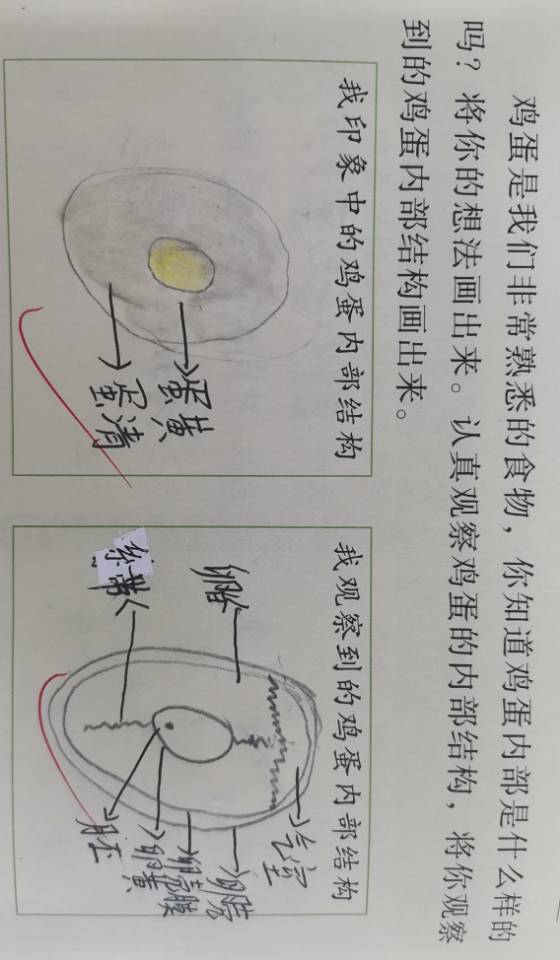 鸡蛋是我们非常熟悉的食物，你知道鸡蛋内部是什么样的
吗？将你的想法画出来。认真观察鸡蛋的内部结构，将你观察
到的鸡蛋内部结构画出来。
我印象中的鸡蛋内部结构
蛋黄
蛋清
我观察到的鸡蛋内部结构
系带
气室
卵壳膜
卵黄
胚